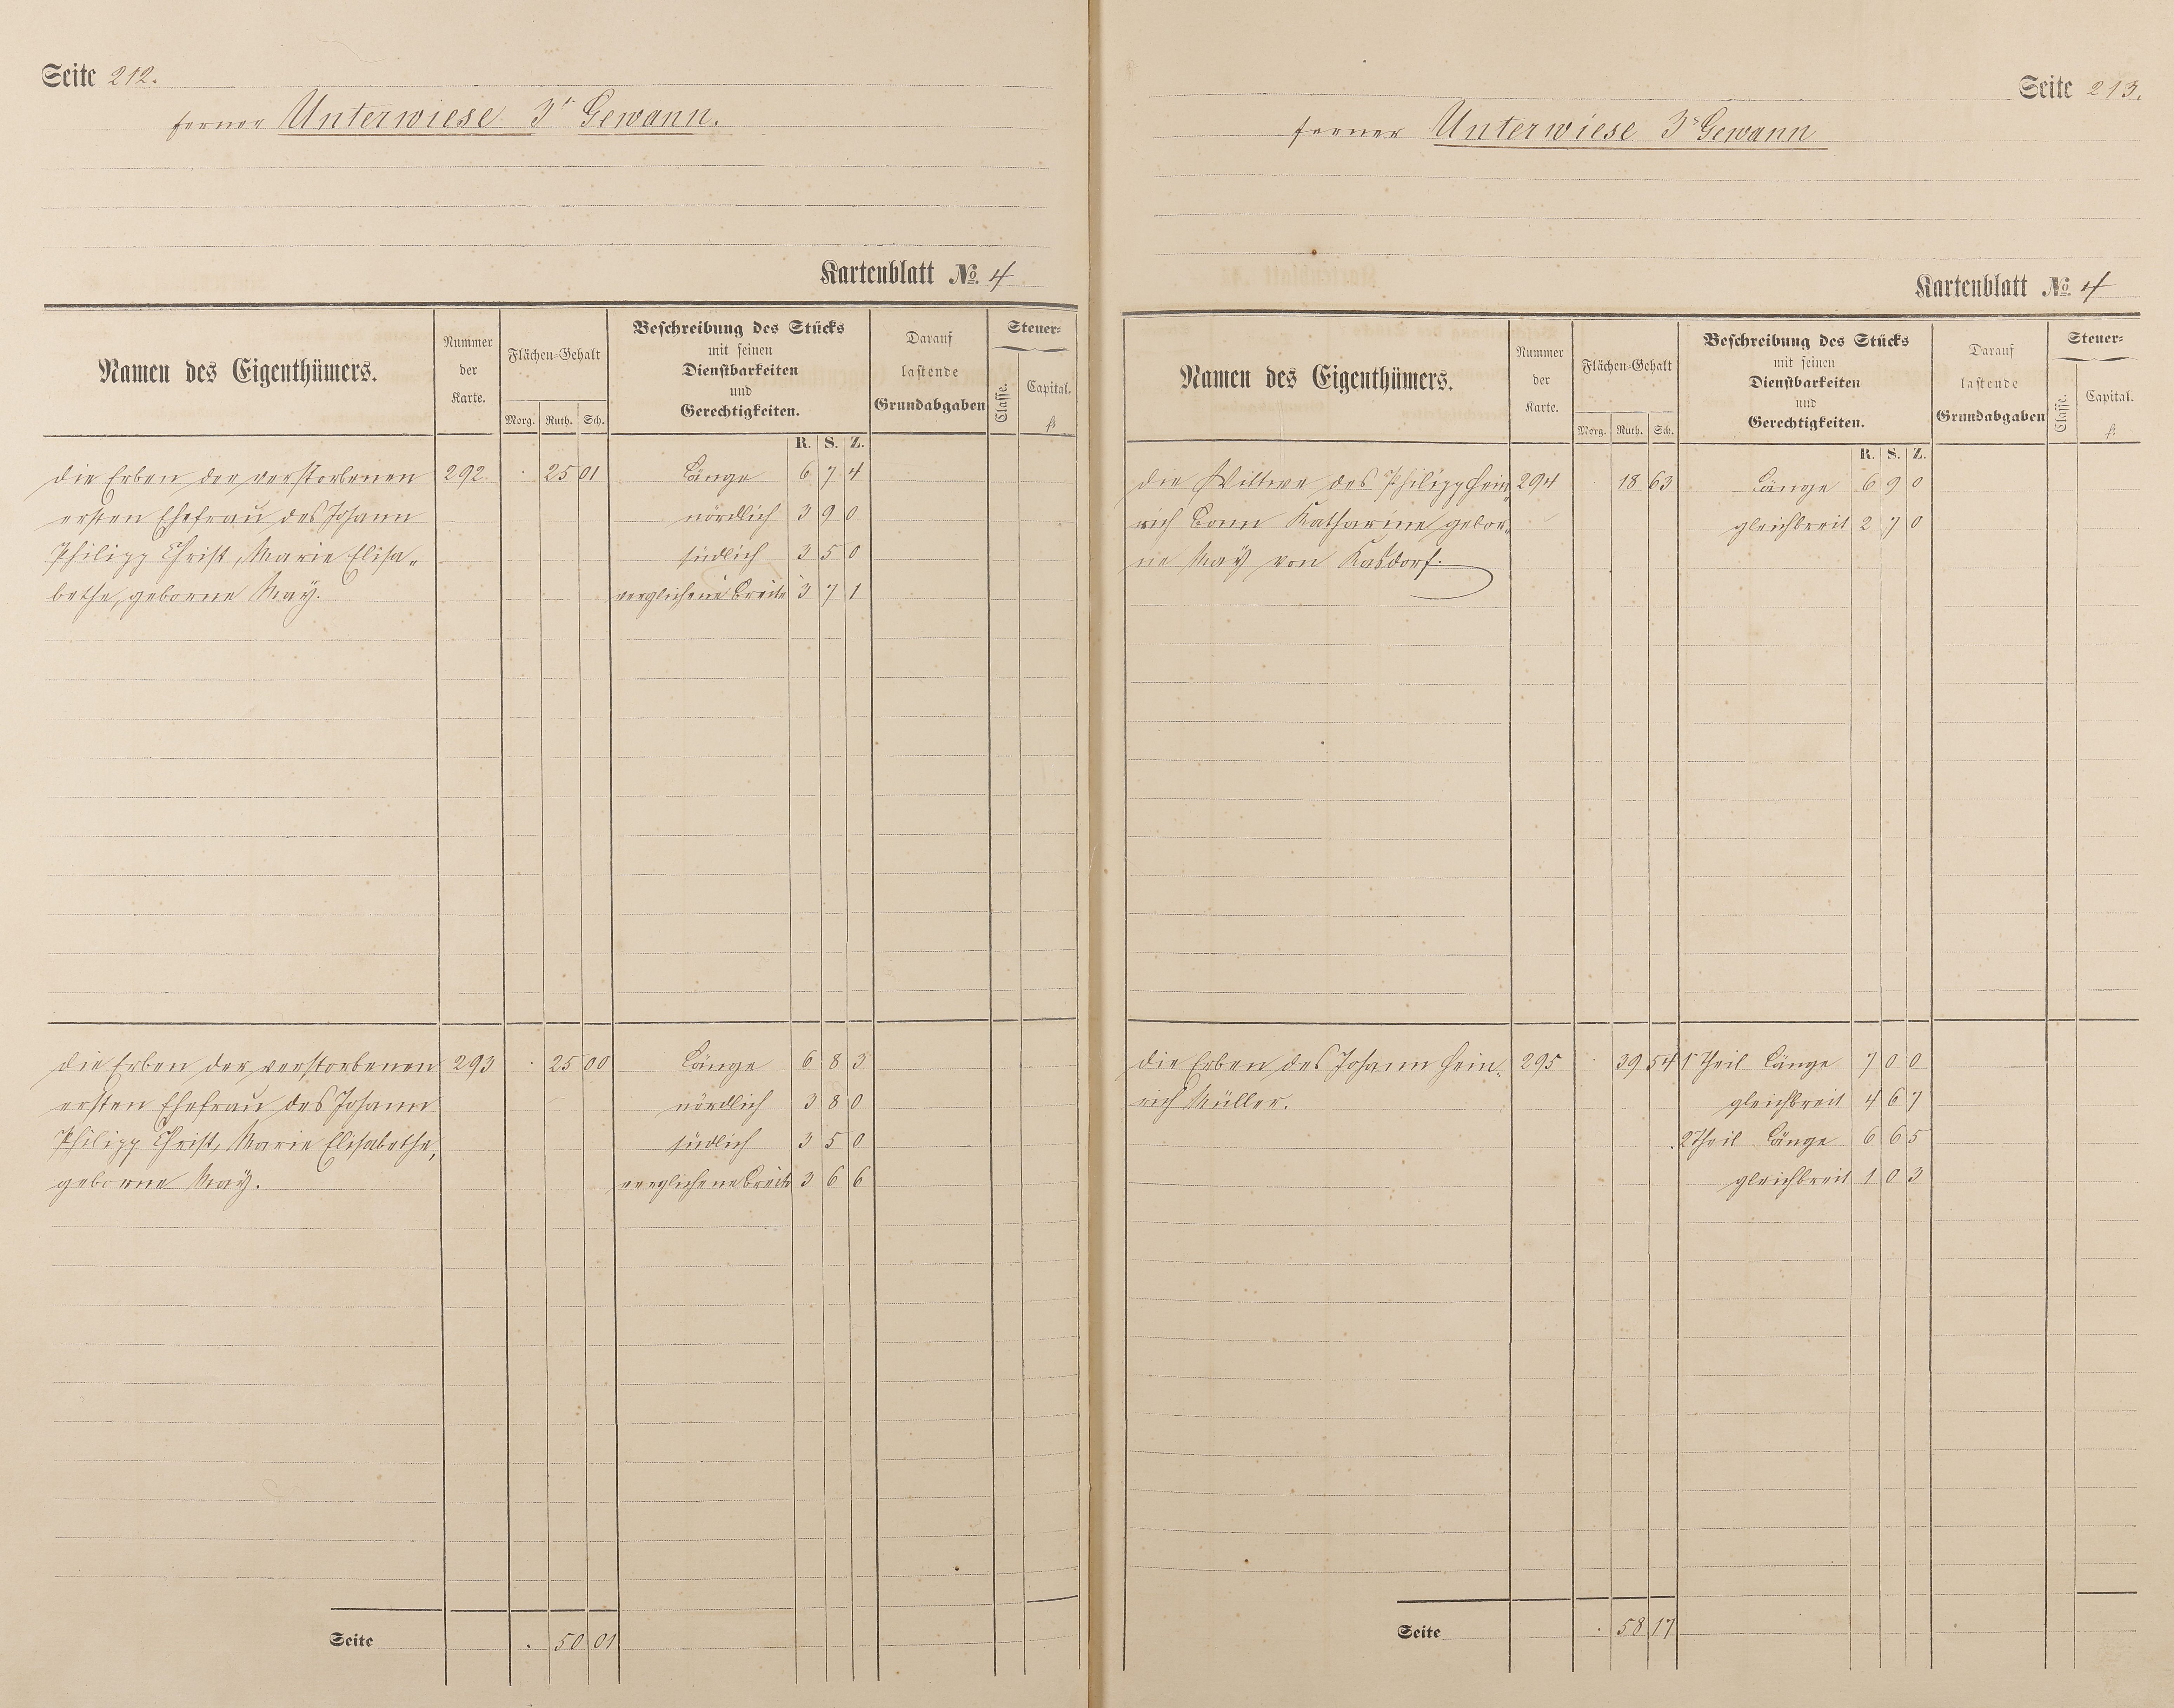 Seite 212.
ferner Unterwiese 3r Gewann.
Kartenblatt No. 4
Namen des Eigenthümers.
Nummer der Karte.
Flächen-Gehalt
Morg. Ruth. Sch.
Beschreibung des Stücks
mit seinen
Dienstbarkeiten
und
Gerechtigkeiten.
Darauf
lastende
Grundabgaben
Steuer-
Classe.
Capital.
fl.
R. S. Z.
die Erben der verstorbenen 292. . 25 01 Länge 6 7 4
ersten Ehefrau des Johann nördlich 3 9 0
Philipp Christ, Marie Elisa- südlich 3 5 0
bethe, geborne May. verglichene Breite 3 7 1
die Erben der verstorbenen 293 . 25 00 Länge 6 8 3
ersten Ehefrau des Johann nördlich 3 8 0
Philipp Christ, Marie Elisabethe, südlich 3 5 0
geborne May. verglichene Breite 3 6 6
Seite . 50 01
Seite 213.
ferner Unterwiese 3r Gewann
Kartenblatt No. 4
Namen des Eigenthümers.
Nummer der Karte.
Flächen-Gehalt
Morg. Ruth. Sch.
Beschreibung des Stücks
mit seinen
Dienstbarkeiten
und
Gerechtigkeiten.
Darauf
lastende
Grundabgaben
Steuer-
Classe.
Capital.
fl.
R. S. Z.
die Wittwe des Philipp Hein- 294 18 63 Länge 6 9 0
rich Bonn Katharine gebor- gleichbreit 2 7 0
ne May von Kasdorf.
die Erben des Johann Hein- 295 . 39 54 1r Theil Länge 7 0 0
rich Müller. gleichbreit 4 6 7
2 Theil Länge 6 6 5
gleichbreit 1 0 3
Seite . 58 17